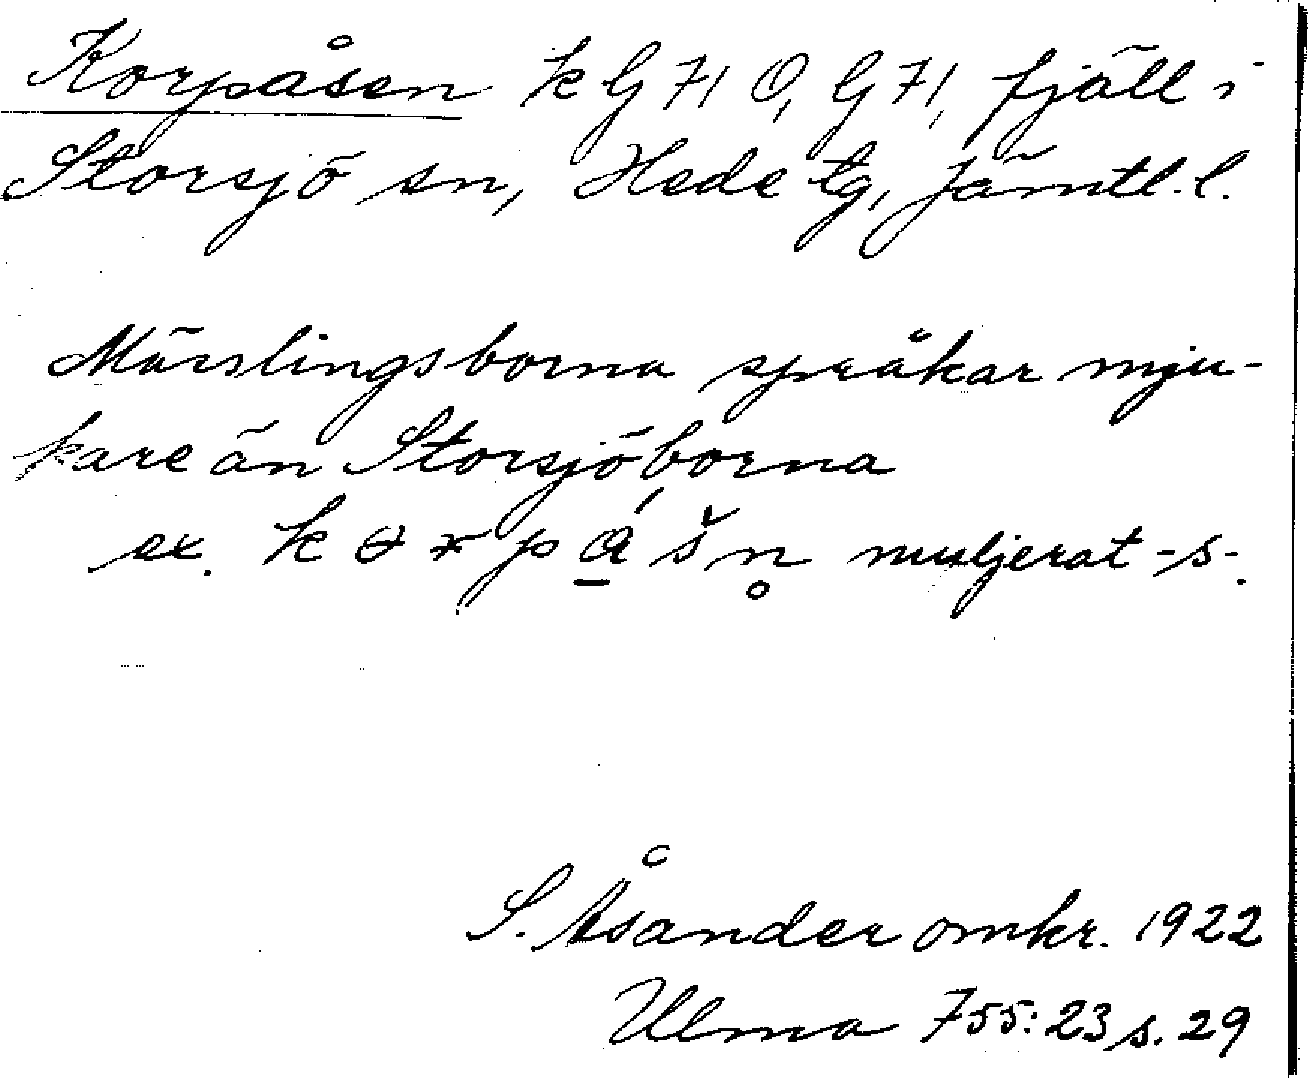 Korpåsen k G 71 O, G 71, fjäll i
Storsjö sn, Hede tg, Jämtl. l.
Märslingsborna språkar mju-
kare än Storsjöborna
ex. muljerat -s-.
S. Åsander omkr. 1922
Ulma 755:23 s. 29